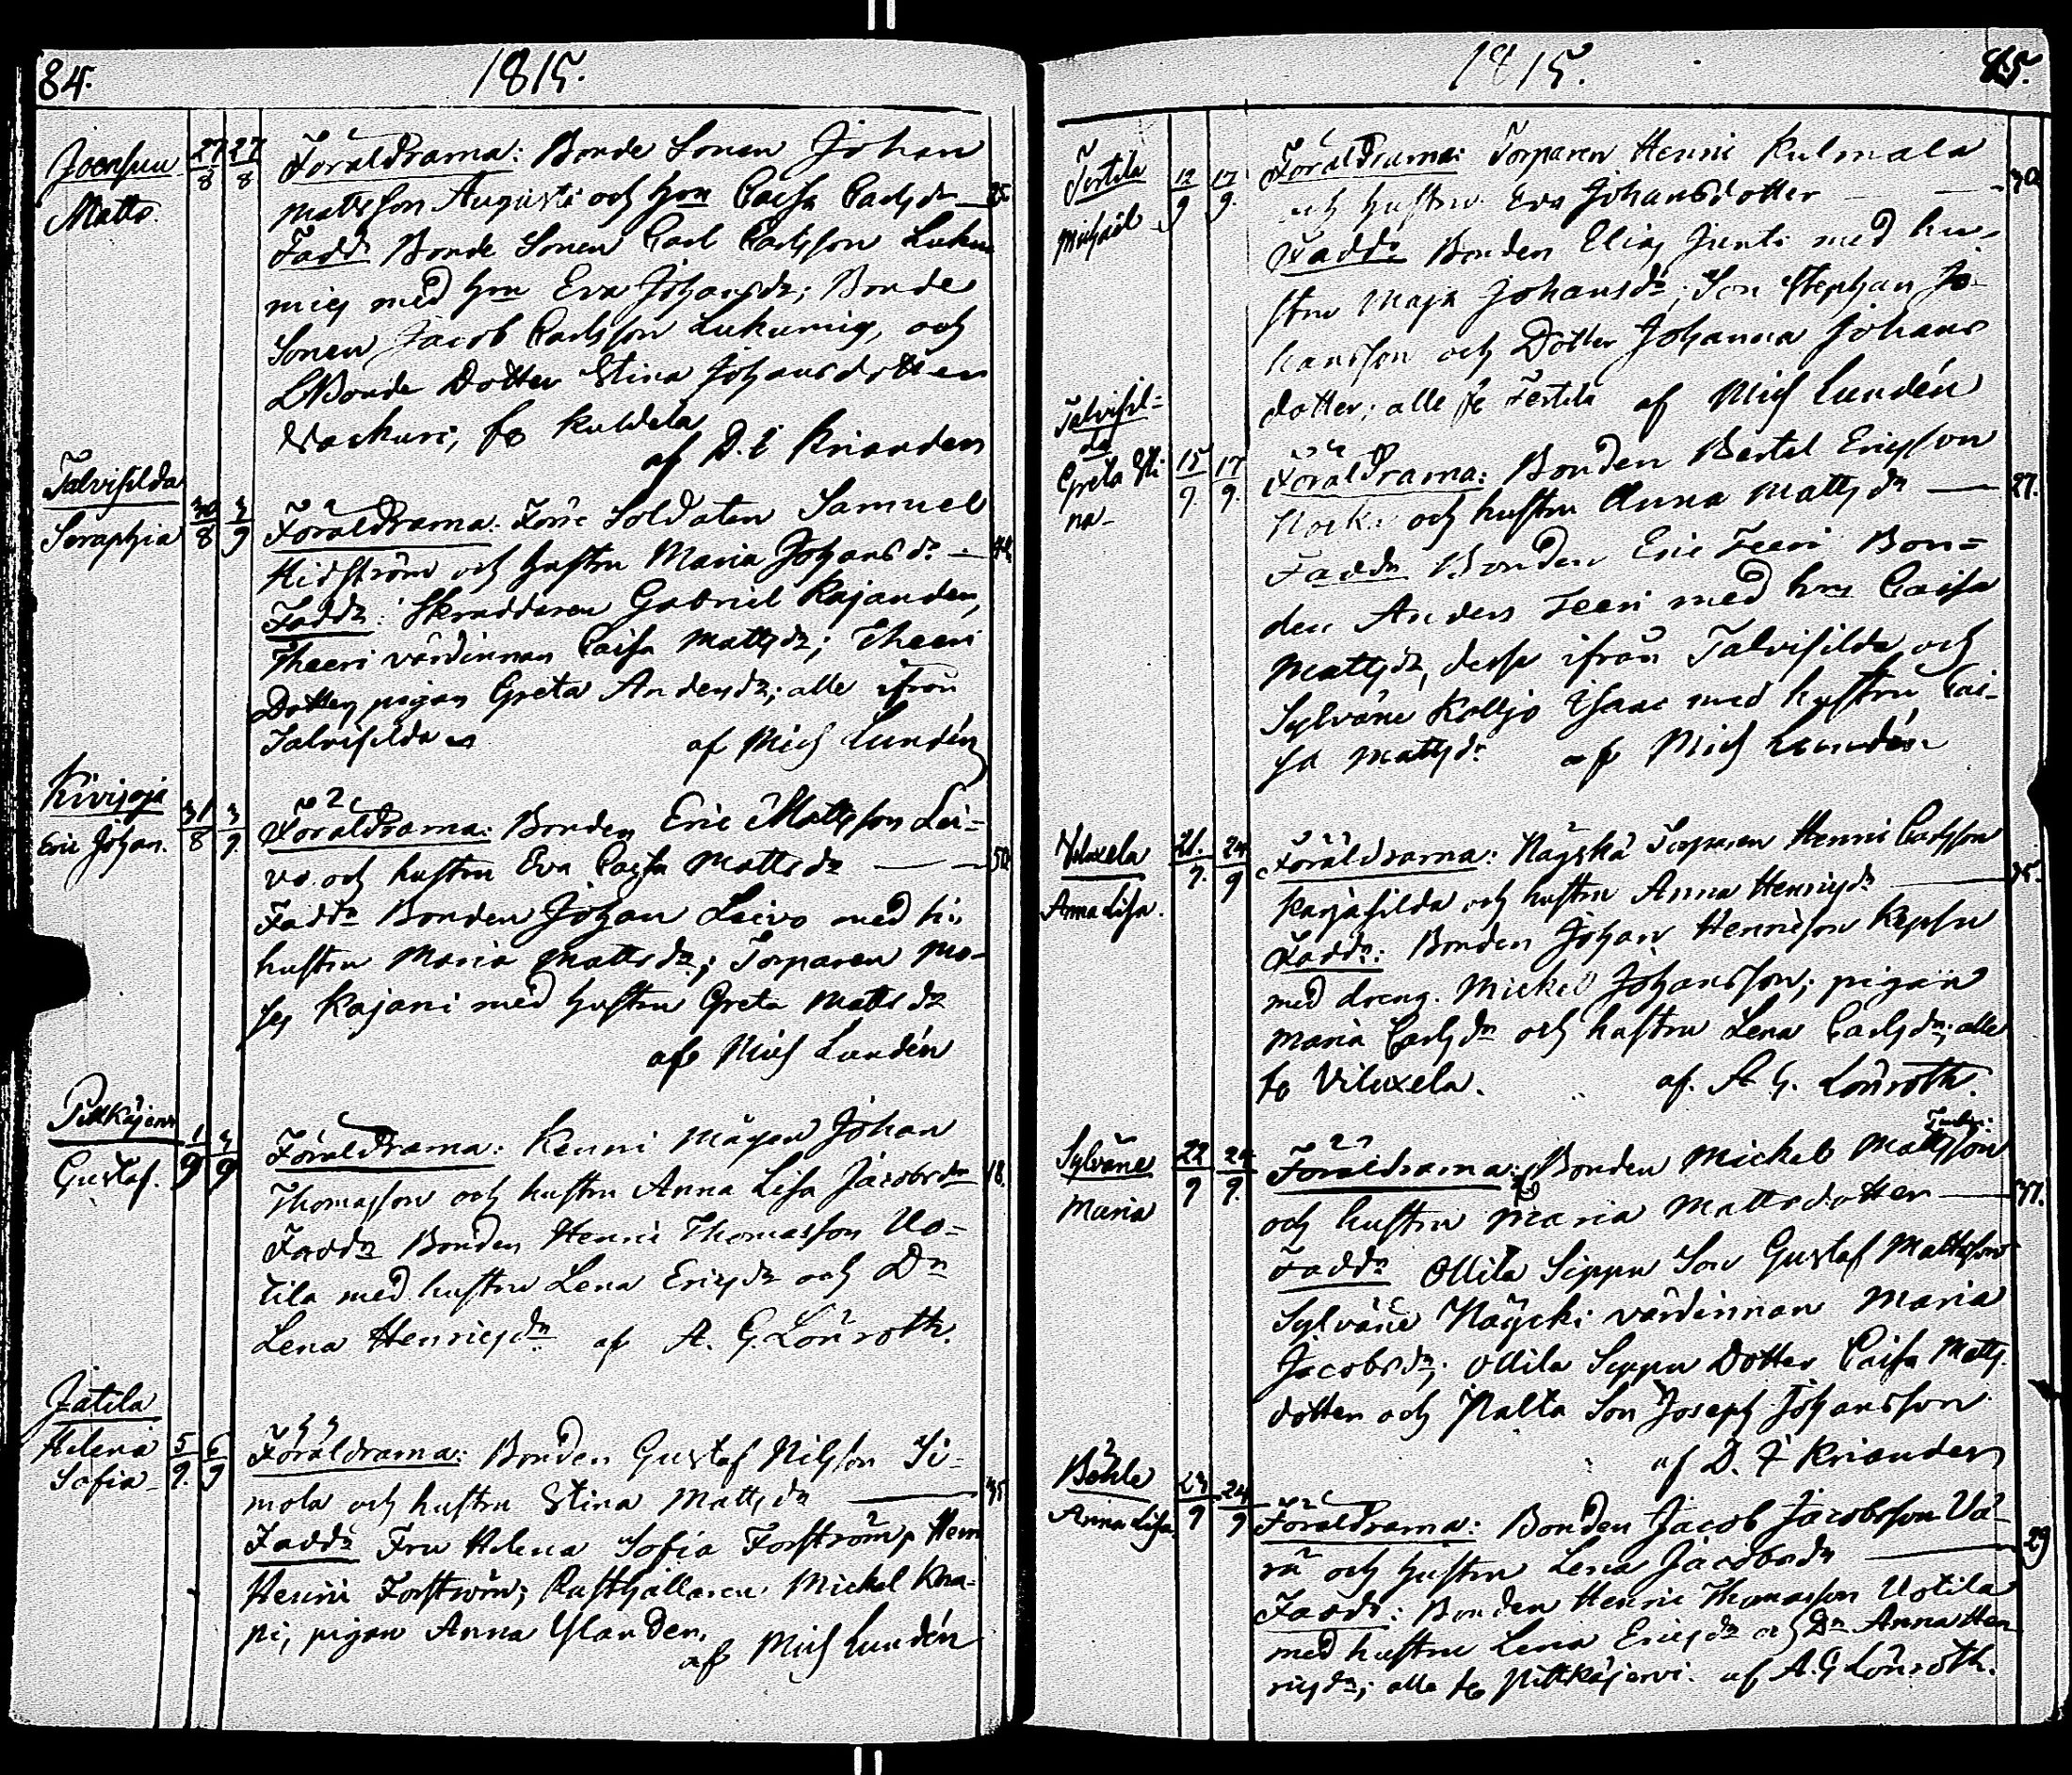 84.
1815.
Joensuu
Matts.
27/8 27/8
Föräldrarna: Bonde Sonen Johan
Mattsson Augusti och hon Caisa Carlsdr — 25.
Fadd: Bonde Sonen Carl Carlsson Luku
mies med hon Eva Johansdr; Bonde
Sonen Jacob Carlsson Lukumies, och
Bonde Dotter Stina Johansdotter
fr Kuldila
af D. E Kriander
Talvisilda
Seraphia
30/8 3/9
Föräldrarna: Förre Soldaten Samuel
Hidström och hustru Maria Johansdr — 44.
Faddr: Skräddaren Gabriel Kajander,
Theeri värdinnan Caisa Mattsdr; Theeri
Dotter, pigan Greta Andersdr; alle ifrån
Talvisilda
af Mich Lundén
Kivioja
Eric Johan.
31/8 3/9
Föräldrarna: Bonden Eric Mattsson Lei-
vo och hustru Eva Caisa Mattsdr — 50.
Faddr Bonden Johan Leivo med
hustru Maria Mattsdr; Torparen Mo-
ses Kajani med hustru Greta Mattsdr
af Mich Lundén
Pitkäjervi
Gustaf.
1/9 3/9
Föräldrarna: Henni Mågen Johan
Thomasson och hustru Anna Lisa Jacobsdr 18.
Faddr Bonden Henric Thomasson Uo-
tila med hustru Lena Ericsdr och Dr
Lena Henricsdr af A. G. Lönroth.
Jatila
Helena
Sofia
5/9. 6/9
Föräldrarna: Bonden Gustaf Nilsson Si-
mola och hustru Stina Mattsdr — 35
Faddr Fru Helena Sofia Forström, Herr
Henric Forström; Rusthållaren Michel Kna-
pi, pigan Anna Ylander,
af Mich Lundén
1815.
85.
Tertila
Michael
12/9 17/9.
Föräldrarna: Torparen Henric Kulmala
och hustru Eva Johansdotter — 30
Faddr Bonden Elias Junti med hu-
stru Maja Johansdr; Son Stephan Jo-
hansson och Dotter Johanna Johans
dotter; alle fr Tertila af Mich Lundén
Talvisil-
da
Greta Sti
na
15/9. 17/9.
Föräldrarna: Bonden Bertel Ericsson
och hustru Anna Mattsdr — 27.
Faddr Bonden Eric Teeri Bon-
den Anders Teeri med hu Caisa
Mattsdr, desse ifrån Talvisilda och
Sylväne Kolljo Isaac med hustru Cai-
sa Mattsdr af Mich Lundén
Viluxela
Anna Lisa.
21./9. 24/9
Föräldrarna: Näyskä Torparen Henric Carlsson
Karjasilda och hustru Anna Henricsdr
Faddr: Bonden Johan Henricsson Kepsu
med dreng. Mickel Johansson; pigan
Maria Carlsdr och hustru Lena Carlsdr; alle
fr Viluxela. af. A G. Lönroth.
Sylväne
Maria
22/9 24/9.
Föräldrarna: Bonden Michel Mattsson
och hustru Maria Mattsdotter — 37.
Faddr Ollila Seppu Son Gustaf Mattsson
Sylväne Näycki värdinnan Maria
Jacobsdr; Ollila Seppu Dotter Caisa Matts
dotter och Nalta Son Joseph Johansson
af D. E Kriander
Böhle
Anna Lisa
23/9 24/9
Föräldrarna: Bonden Jacob Jacobsson Uä-
rä och hustru Lena Jacobsdr — 29
Faddr: Bonden Henric Thomasson Uotila
med hustru Lena Ericsdr och Dr Anna Hen
ricsdr; alle fr Pitkäjervi. af A. G Lönroth.